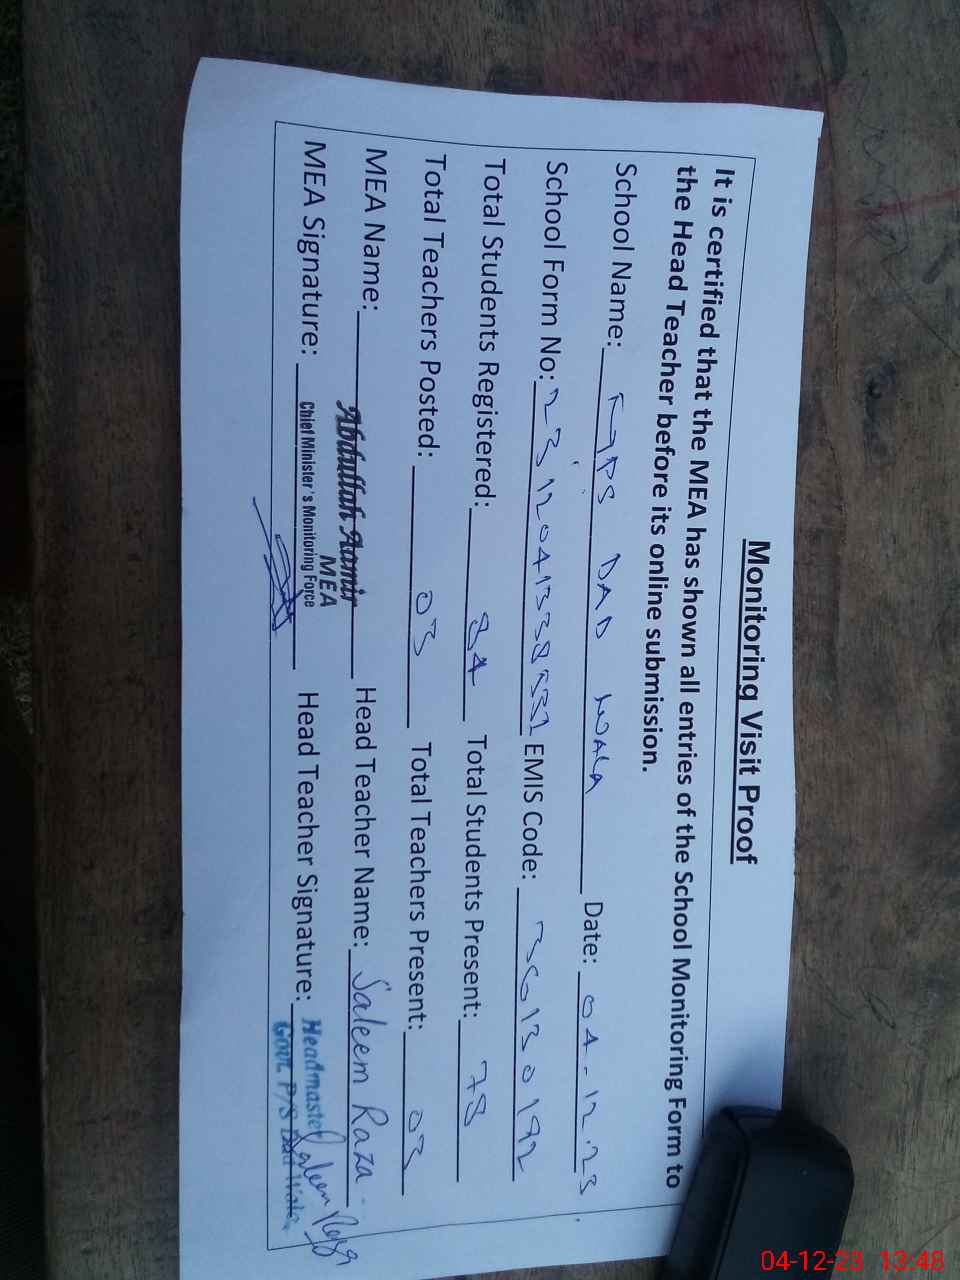 Monitoring Visit Proof
It is certified that the MEA has shown all entries of the School Monitoring Form to
the Head Teacher before its online submission.
School Name: GPS DAD WALA Date: 04-12-23
School Form No: EMIS Code: 36130192
Total Students Registered: 84 Total Students Present: 78
Total Teachers Posted: 03 Total Teachers Present: 03
MEA Name: Abdullah Aamir Head Teacher Name: Saleem Raza
MEA
Chief Minister's Monitoring Force
MEA Signature: Head Teacher Signature: Saleem Raza
Headmaster
Govt. P/S Dad Wala
04-12-23 13:48